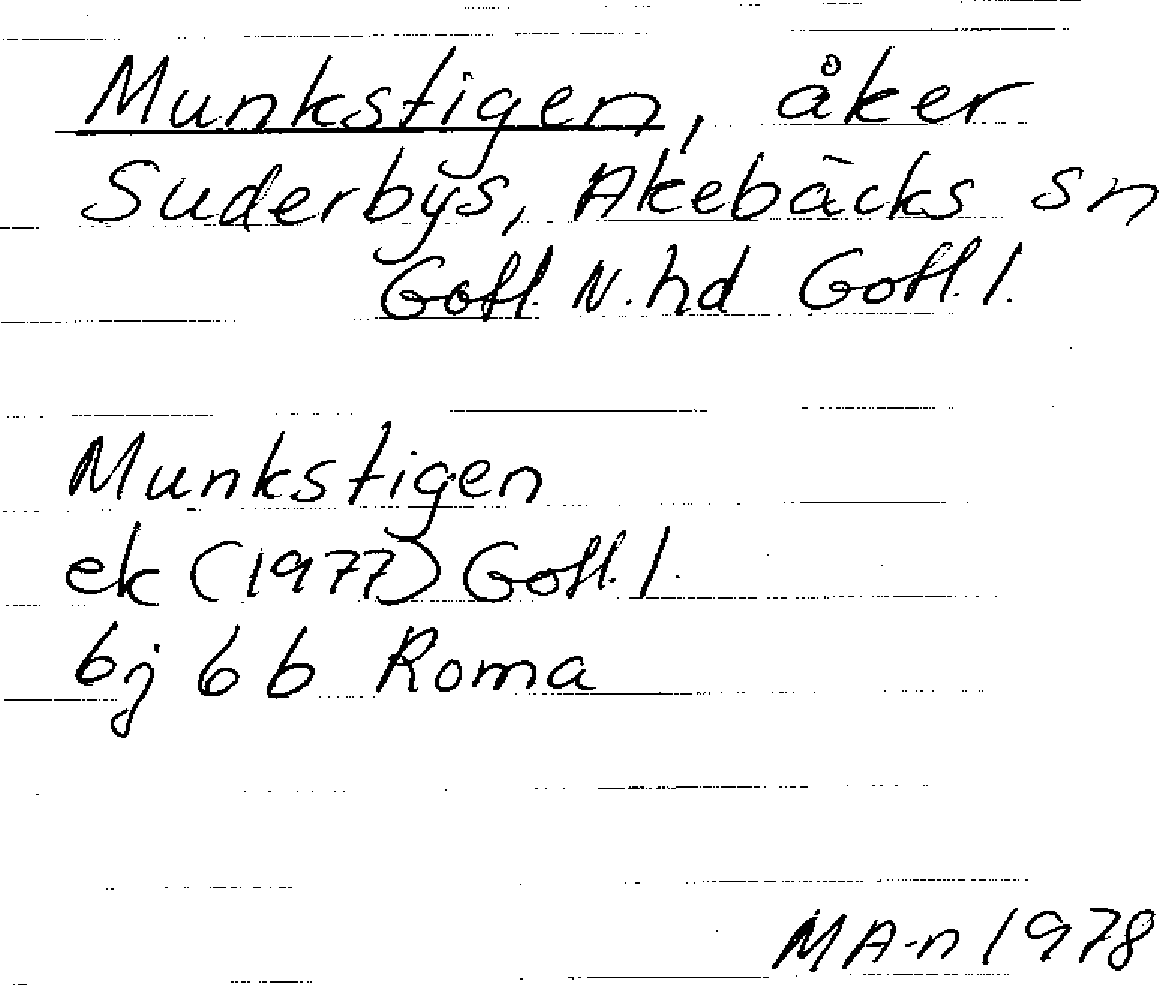 Munkstigen, åker
Suderbys, Akebäcks sn
Gotl. N. hd Gotl. l.
Munkstigen
ek (1977) Gotl. l.
bj 6 b Roma
MA-n 1978